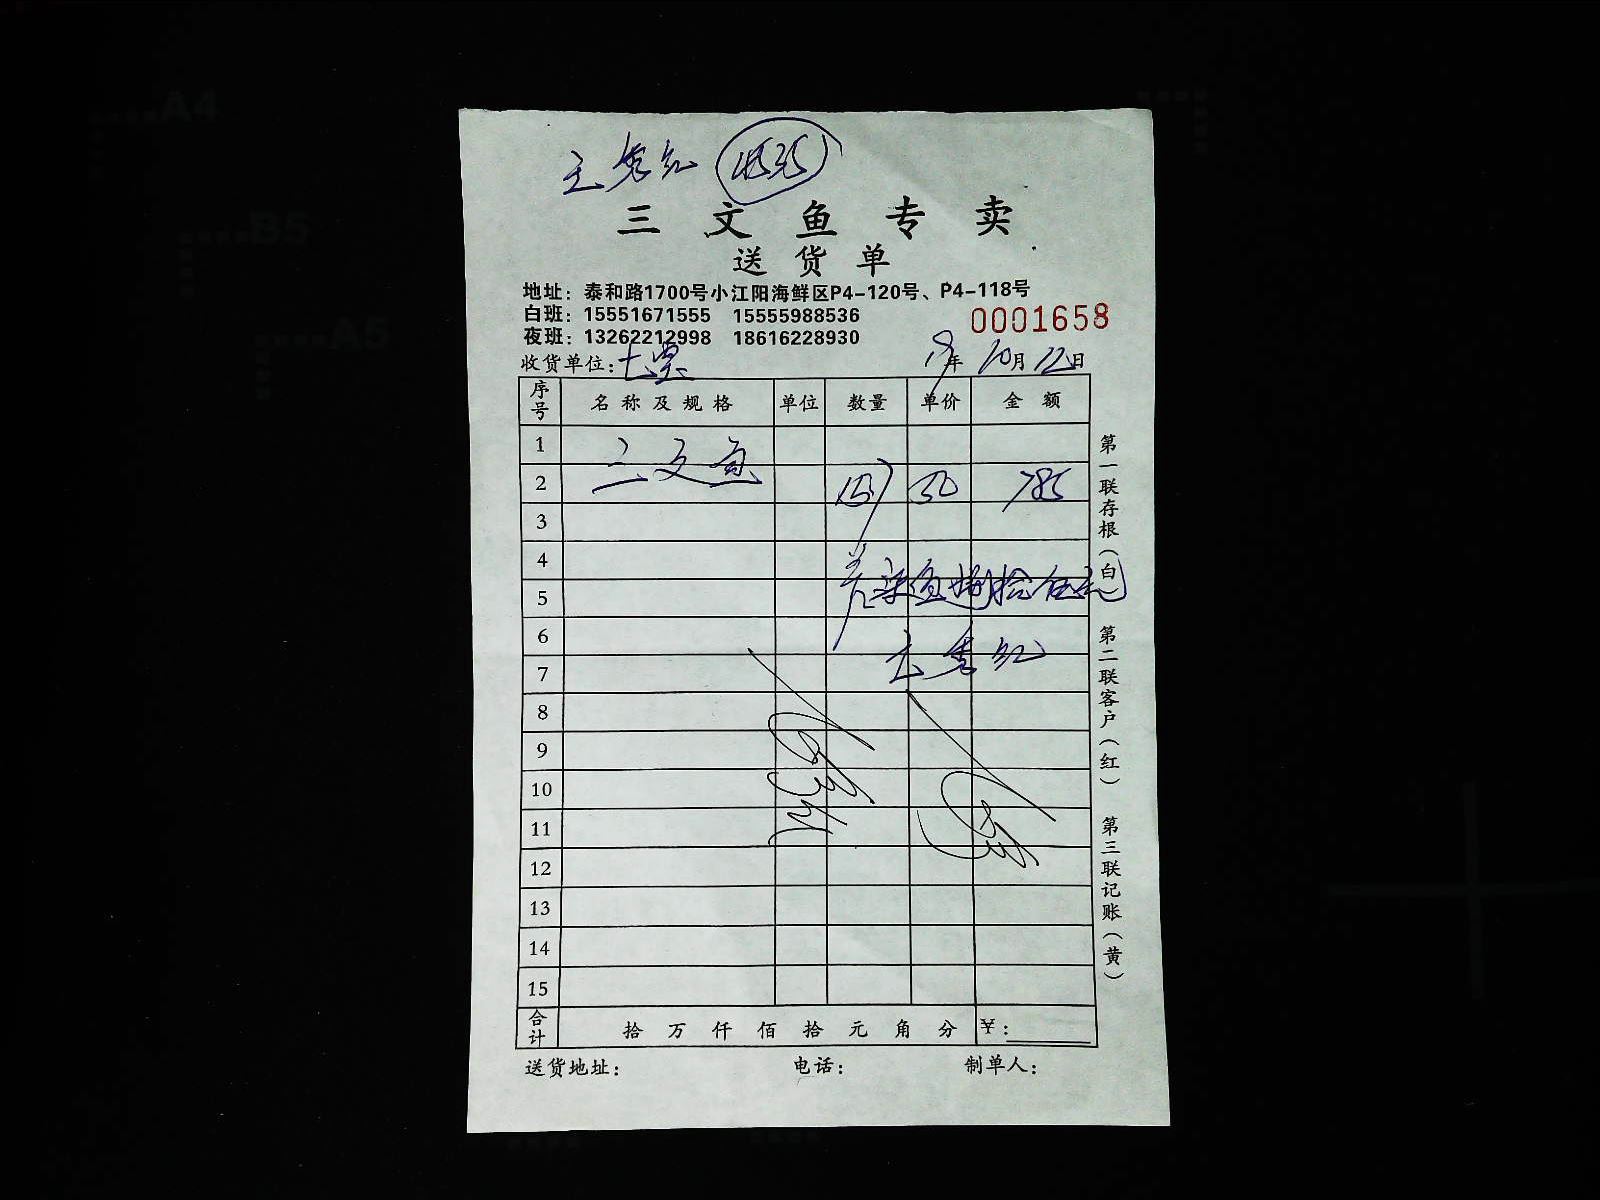 王秀红
三文鱼专卖
送货单
地址：泰和路1700号小江阳海鲜区P4-120号、P4-118号
白班：15551671555 15555988536
0001658
夜班：13262212998 18616228930
收货单位： 年10月12日
序号 名称及规格 单位 数量 单价 金额
1 三文鱼
2 50 785
3
4
5 柒佰捌拾伍元
6
王秀红
7
8
9
10
11
12
13
14
15
合计 拾万仟佰拾元角分 ¥：
送货地址： 电话： 制单人：
第一联存根（白） 第二联客户（红） 第三联记账（黄）
A4
B5
A5